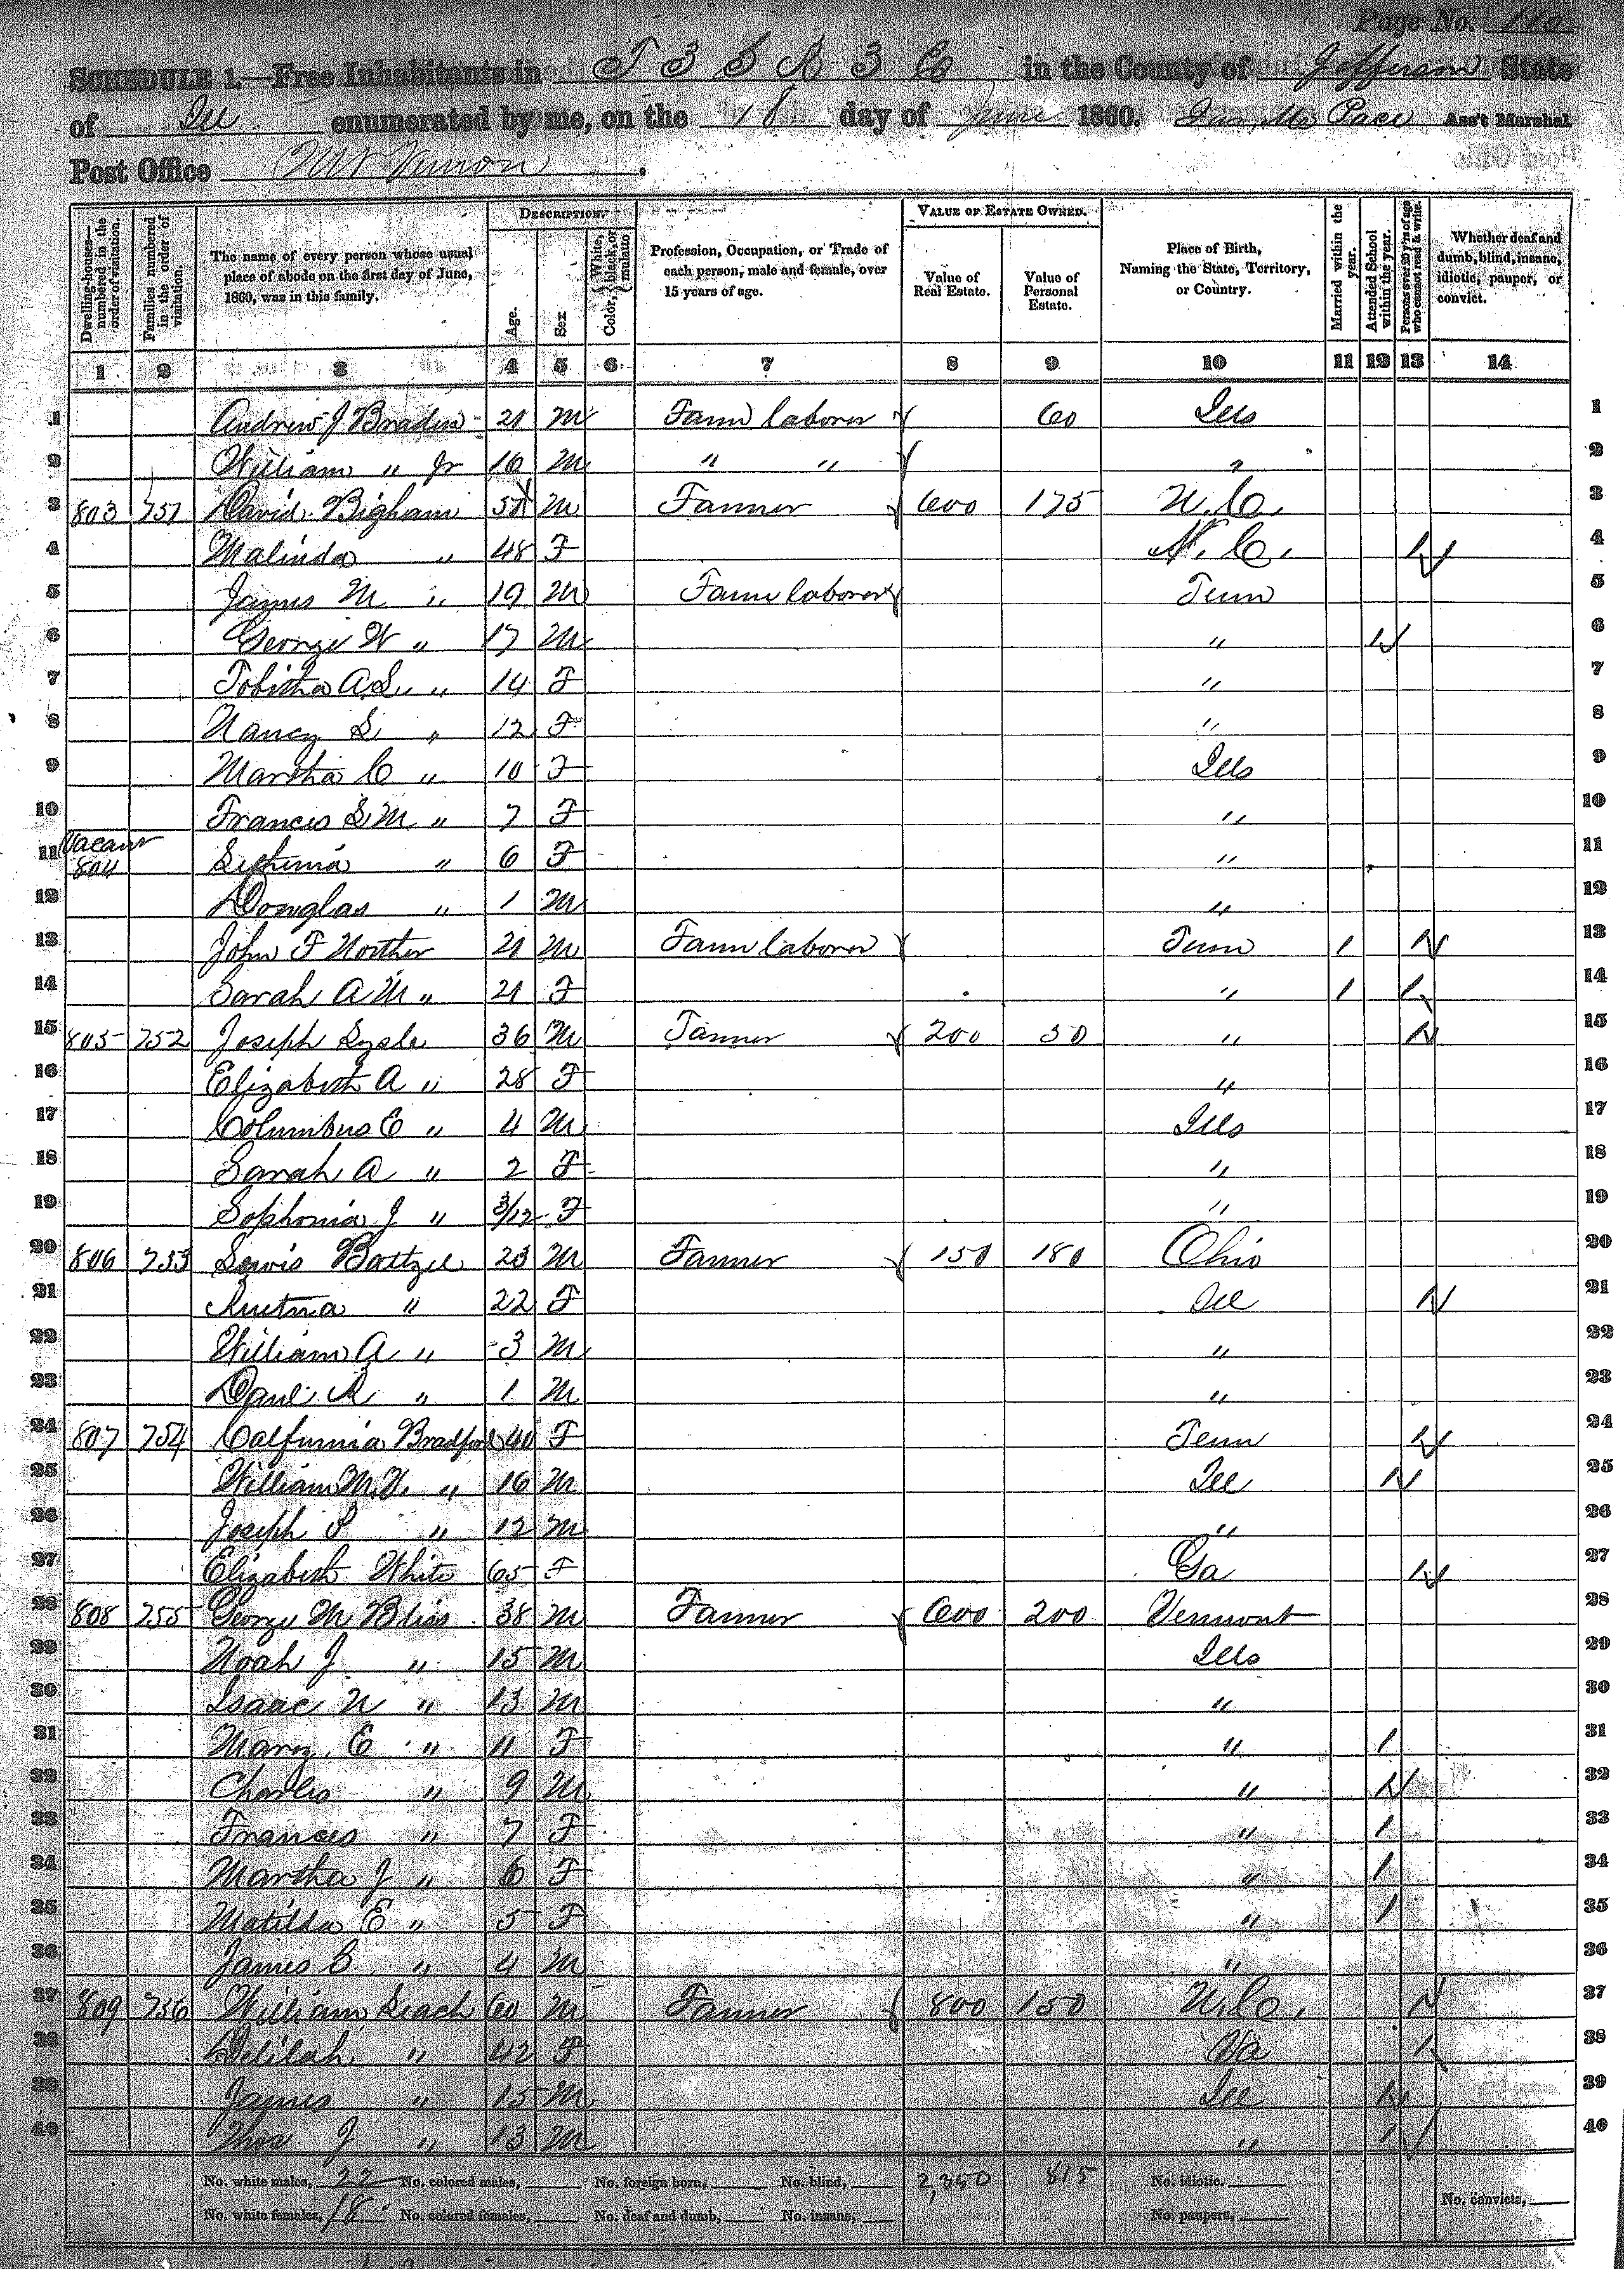 Page No. 110
SCHEDULE 1.—Free Inhabitants in T 3 S R 3 E in the County of Jefferson State
of Ill enumerated by me, on the 18 day of June 1860. Jas. Mc Pace Ass't Marshal.
Post Office Mt Vernon.
Dwelling-houses—numbered in the order of visitation.
Families numbered in the order of visitation.
The name of every person whose usual place of abode on the first day of June, 1860, was in this family.
DESCRIPTION.
Age.
Sex
Color, { White, black, or mulatto
Profession, Occupation, or Trade of each person, male and female, over 15 years of age.
VALUE OF ESTATE OWNED.
Value of Real Estate.
Value of Personal Estate.
Place of Birth, Naming the State, Territory, or Country.
Married within the year.
Attended School within the year.
Persons over 20 y'rs of age who cannot read & write.
Whether deaf and dumb, blind, insane, idiotic, pauper, or convict.
1 2 3 4 5 6 7 8 9 10 11 12 13 14
1 Andrew J Braden 21 M Farm laborer 60 Ills 1
2 William " Jr 16 M " " " 2
3 803 751 David Bigham M Farmer 600 175 N.C. 3
4 Malinda " 48 F N.C. 4
5 James M " 19 M Farm laborer Tenn 5
6 George W " 17 M " 6
7 Tobitha A.L. " 14 F " 7
8 Nancy L " 12 F " 8
9 Martha C " 10 F Ills 9
10 Francis S.M. " 7 F " 10
11 Vacant 804 " 6 F " 11
12 Douglas " 1 M " 12
13 John F Norther 21 M Farm laborer Tenn 1 13
14 Sarah A M " 21 F " 1 1 14
15 805 752 Joseph Lysle 36 M Farmer 200 50 " 15
16 Elizabeth A " 28 F " 16
17 Columbus E " 4 M Ills 17
18 Sarah A " 2 F " 18
19 Sophonia J " 3/12 F " 19
20 806 753 Lewis Battzel 23 M Farmer 150 180 Ohio 20
21 " 22 F Ill 21
22 William A " 3 M " 22
23 " 1 M " 23
24 807 754 Calfurnia Bradford 40 F Tenn 24
25 William M.V. " 16 M Ill 25
26 Joseph P " 12 M " 26
27 Elizabeth White 65 F Ga 27
28 808 755 George M Bliss 38 M Farmer 600 200 Vermont 28
29 Noah J " 15 M Ills 29
30 Isaac N " 13 M " 30
31 Mary E " 11 F " 1 31
32 Charles " 9 M " 32
33 Frances " 7 F " 1 33
34 Martha J " 6 F " 1 34
35 Matilda E " 5 F " 1 35
36 James C " 4 M " 36
37 809 756 William Leach 60 M Farmer 800 150 N.C. 37
38 Delilah " 42 F Va 38
39 James " 15 M Ill 39
40 Thos J " 13 M " 40
No. white males, 22 No. colored males, No. foreign born, No. blind, 2,350 815 No. idiotic.
No. white females, 18 No. colored females, No. deaf and dumb, No. insane, No. paupers, No. convicts,